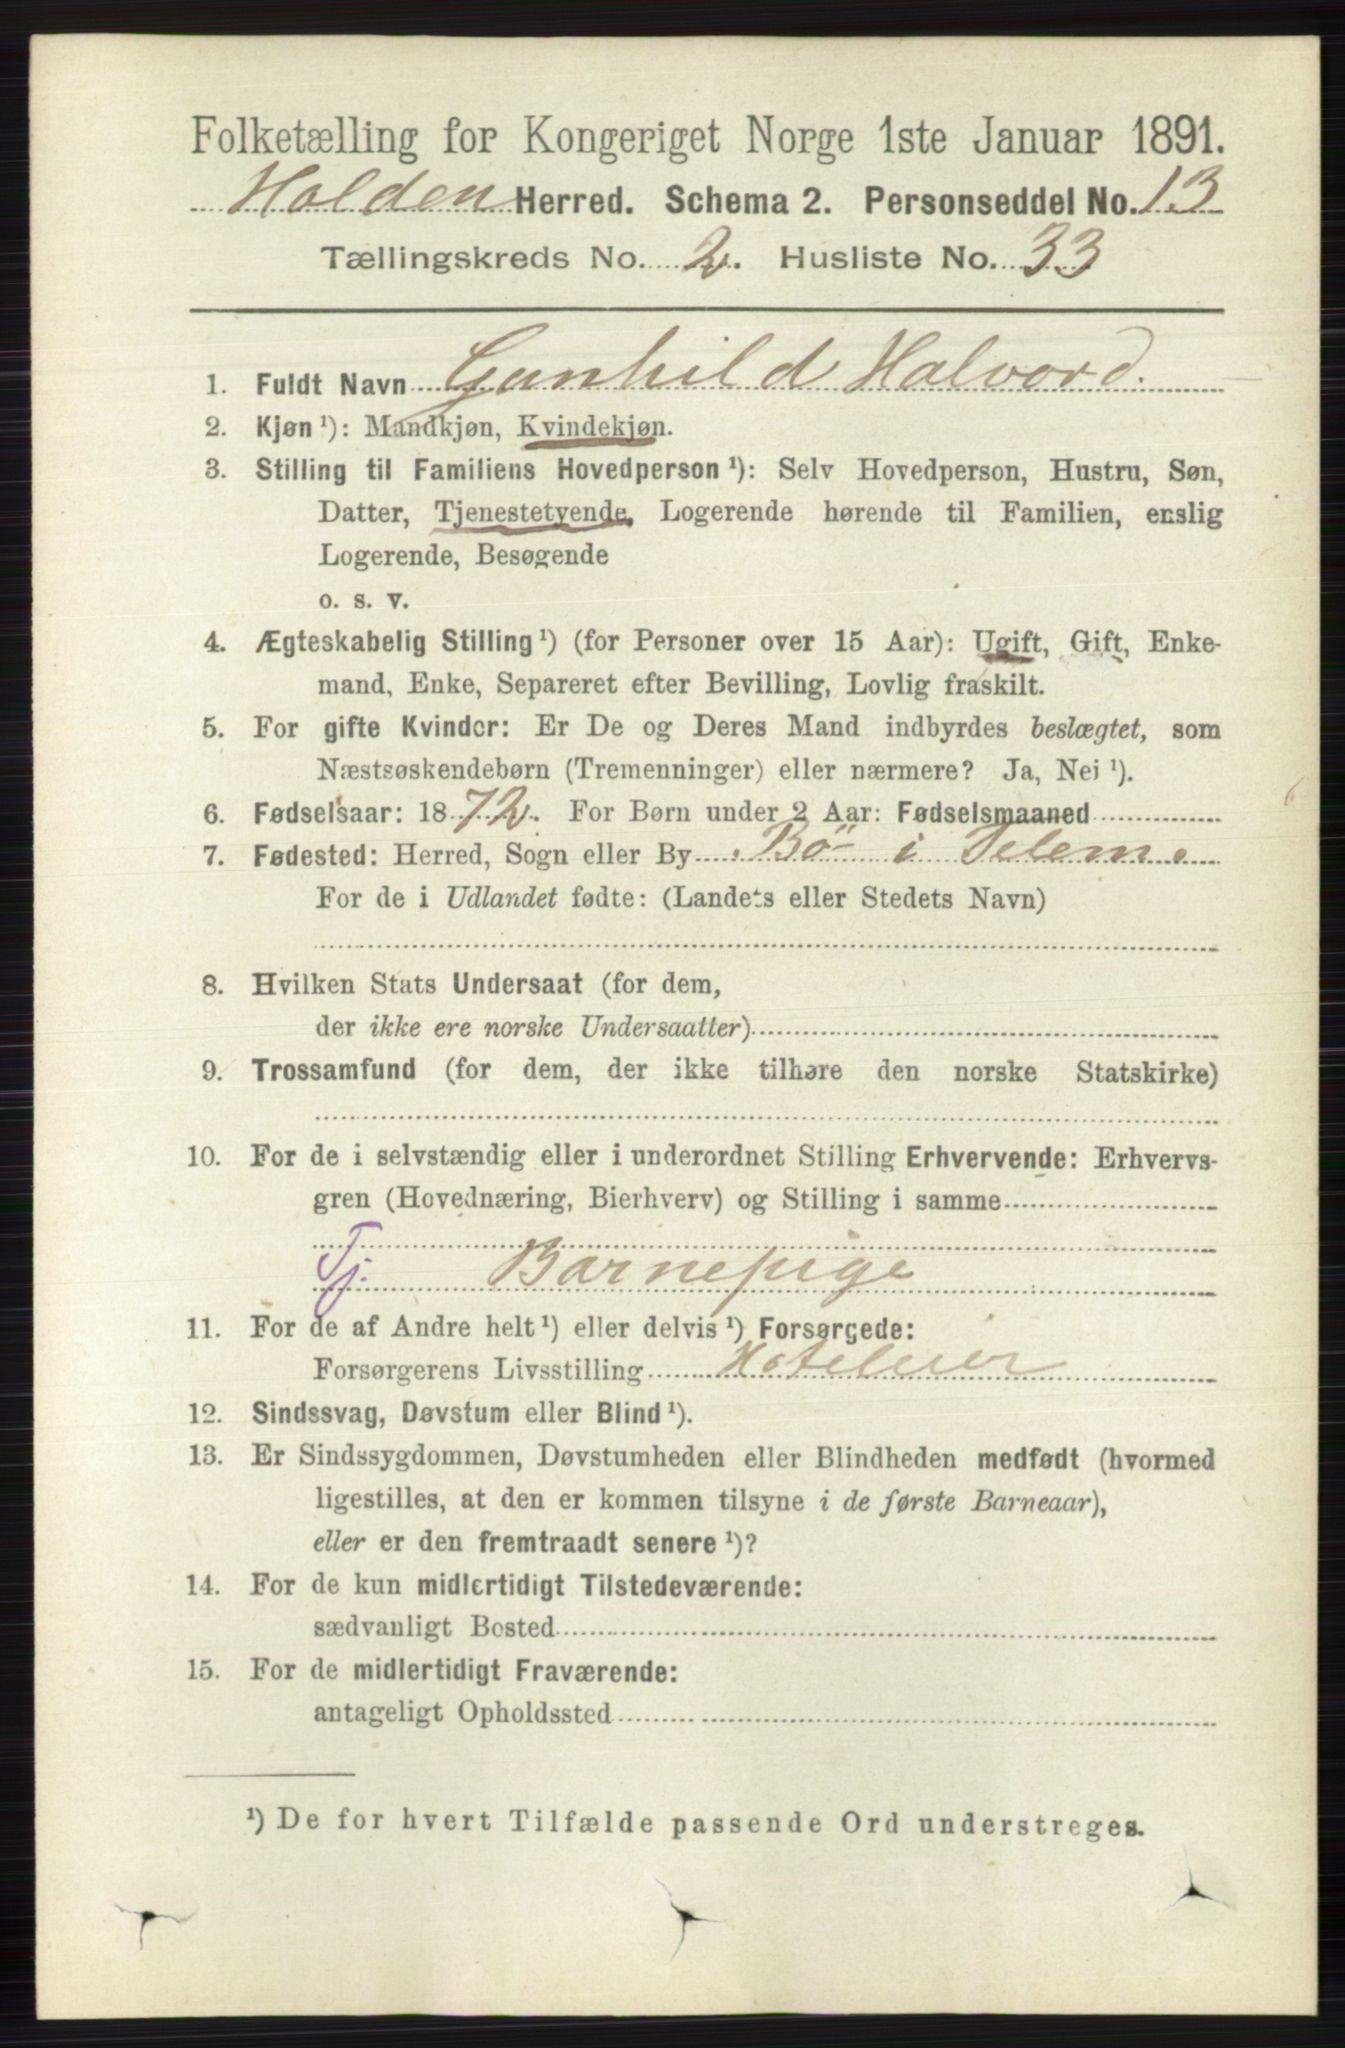 Folketælling for Kongeriget Norge 1ste Januar 1891.
Holden Herred. Schema 2. Personseddel No. 13
Tællingskreds No. 2. Husliste No. 33
1. Fuldt Navn Gunhild Halvord.
2. Kjøn ¹): Mandkjøn, Kvindekjøn.
3. Stilling til Familiens Hovedperson ¹): Selv Hovedperson, Hustru, Søn,
Datter, Tjenestetyende, Logerende hørende til Familien, enslig
Logerende, Besøgende
o. s. v.
4. Ægteskabelig Stilling ¹) (for Personer over 15 Aar): Ugift, Gift, Enke-
mand, Enke, Separeret efter Bevilling, Lovlig fraskilt.
5. For gifte Kvinder: Er De og Deres Mand indbyrdes beslægtet, som
Næstsøskendebørn (Tremenninger) eller nærmere? Ja, Nei ¹).
6. Fødselsaar: 1872. For Børn under 2 Aar: Fødselsmaaned
7. Fødested: Herred, Sogn eller By Bö i Telem.
For de i Udlandet fødte: (Landets eller Stedets Navn)
8. Hvilken Stats Undersaat (for dem,
der ikke ere norske Undersaatter)
9. Trossamfund (for dem, der ikke tilhøre den norske Statskirke)
10. For de i selvstændig eller i underordnet Stilling Erhvervende: Erhvervs-
gren (Hovednæring, Bierhverv) og Stilling i samme
Tj. Barnepige
11. For de af Andre helt ¹) eller delvis ¹) Forsørgede:
Forsørgerens Livsstilling Hoteleier
12. Sindssvag, Døvstum eller Blind ¹).
13. Er Sindssygdommen, Døvstumheden eller Blindheden medfødt (hvormed
ligestilles, at den er kommen tilsyne i de første Barneaar),
eller er den fremtraadt senere ¹)?
14. For de kun midlertidigt Tilstedeværende:
sædvanligt Bosted
15. For de midlertidigt Fraværende:
antageligt Opholdssted
¹) De for hvert Tilfælde passende Ord understreges.